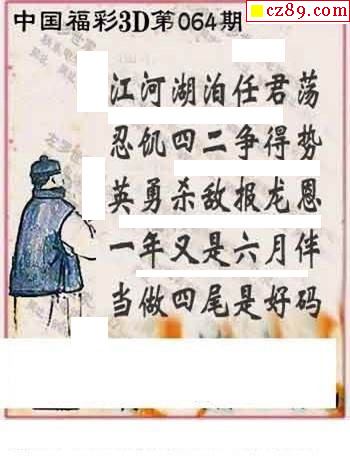 cz89.com
中国福彩3D第064期
江河湖泊任君荡
忍饥四二争得势
英勇杀敌报龙恩
一年又是六月伴
当做四尾是好码